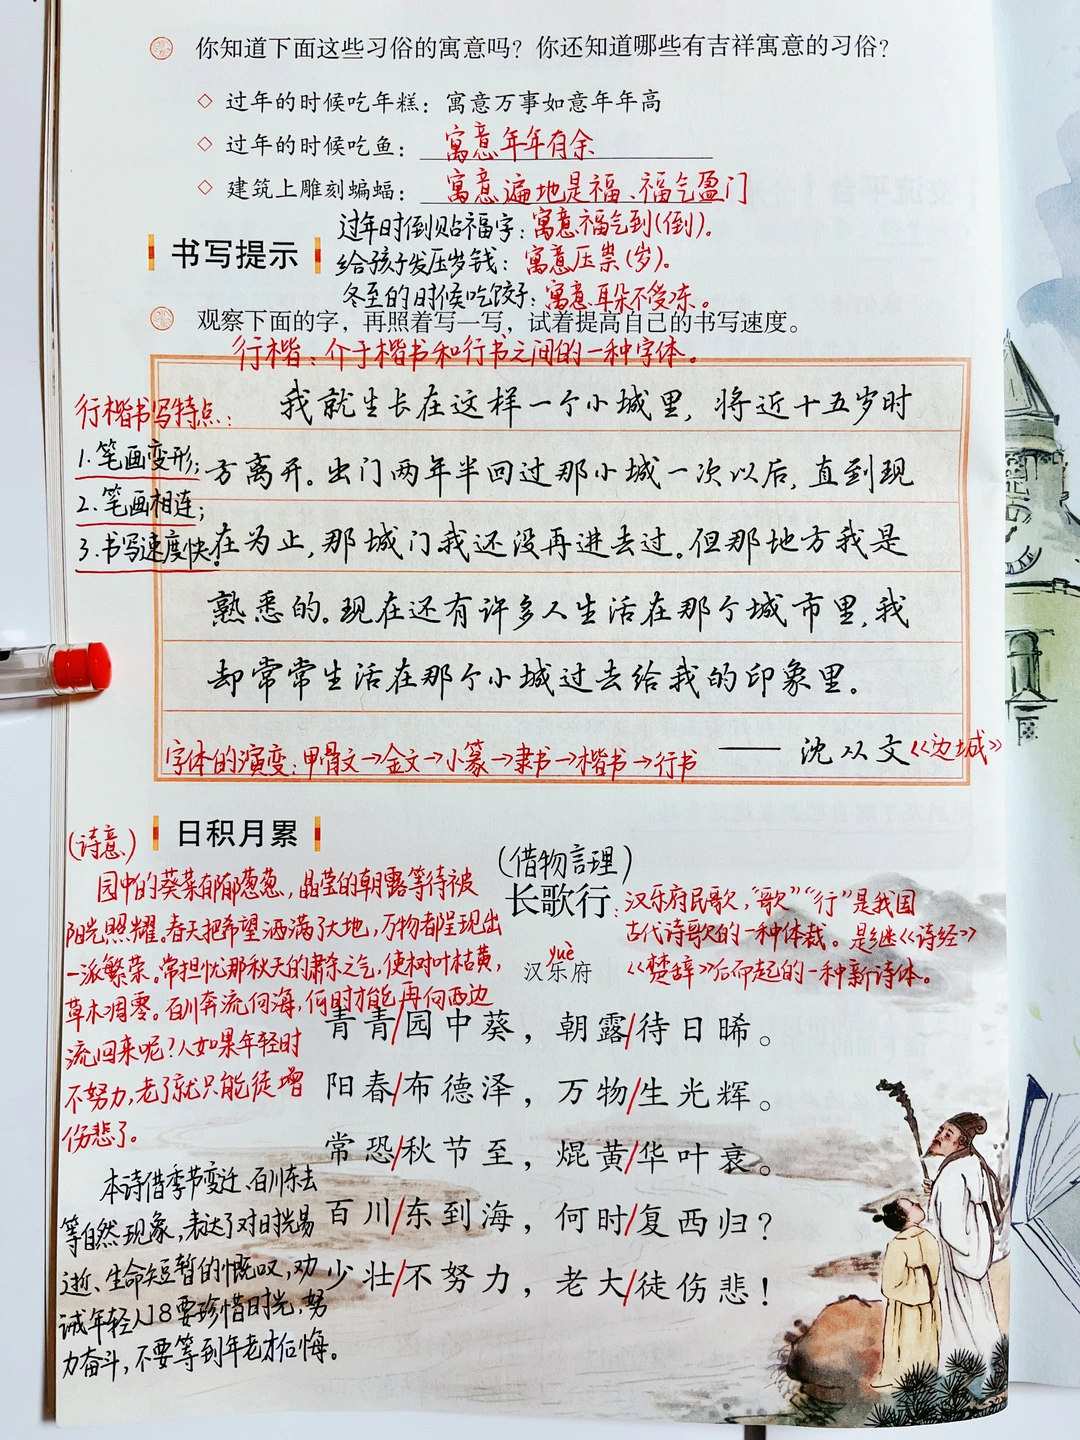 你知道下面这些习俗的寓意吗？你还知道哪些有吉祥寓意的习俗？
◇ 过年的时候吃年糕：寓意万事如意年年高
◇ 过年的时候吃鱼：寓意年年有余
◇ 建筑上雕刻蝙蝠：寓意遍地是福、福气盈门
过年时倒贴福字：寓意福气到(倒)。
给孩子发压岁钱：寓意压祟(岁)。
冬至的时候吃饺子：寓意耳朵不受冻。
书写提示
观察下面的字，再照着写一写，试着提高自己的书写速度。
行楷：介于楷书和行书之间的一种字体。
行楷书写特点：
1.笔画变形；
2.笔画相连；
3.书写速度快。
我就生长在这样一个小城里，将近十五岁时
方离开。出门两年半回过那小城一次以后，直到现
在为止，那城门我还没再进去过。但那地方我是
熟悉的。现在还有许多人生活在那个城市里，我
却常常生活在那个小城过去给我的印象里。
—— 沈从文《边城》
字体的演变：甲骨文→金文→小篆→隶书→楷书→行书
日积月累
(诗意)
园中的葵菜郁郁葱葱，晶莹的朝露等待被
阳光照耀。春天把希望洒满了大地，万物都呈现出
一派繁荣。常担忧那秋天的肃杀之气，使树叶枯黄，
草木凋零。百川奔流向海，何时才能再向西边
流回来呢？人如果年轻时
不努力，老了就只能徒增
伤悲了。
本诗借季节变迁、百川东去
等自然现象，表达了对时光易
逝、生命短暂的慨叹，劝
诫年轻人18要珍惜时光，努
力奋斗，不要等到年老才后悔。
(借物言理)
长歌行：汉乐府民歌，“歌”“行”是我国
古代诗歌的一种体裁。是继《诗经》
《楚辞》后而起的一种新诗体。
yuè
汉乐府
青青/园中葵，朝露/待日晞。
阳春/布德泽，万物/生光辉。
常恐/秋节至，焜黄/华叶衰。
百川/东到海，何时/复西归？
少壮/不努力，老大/徒伤悲！